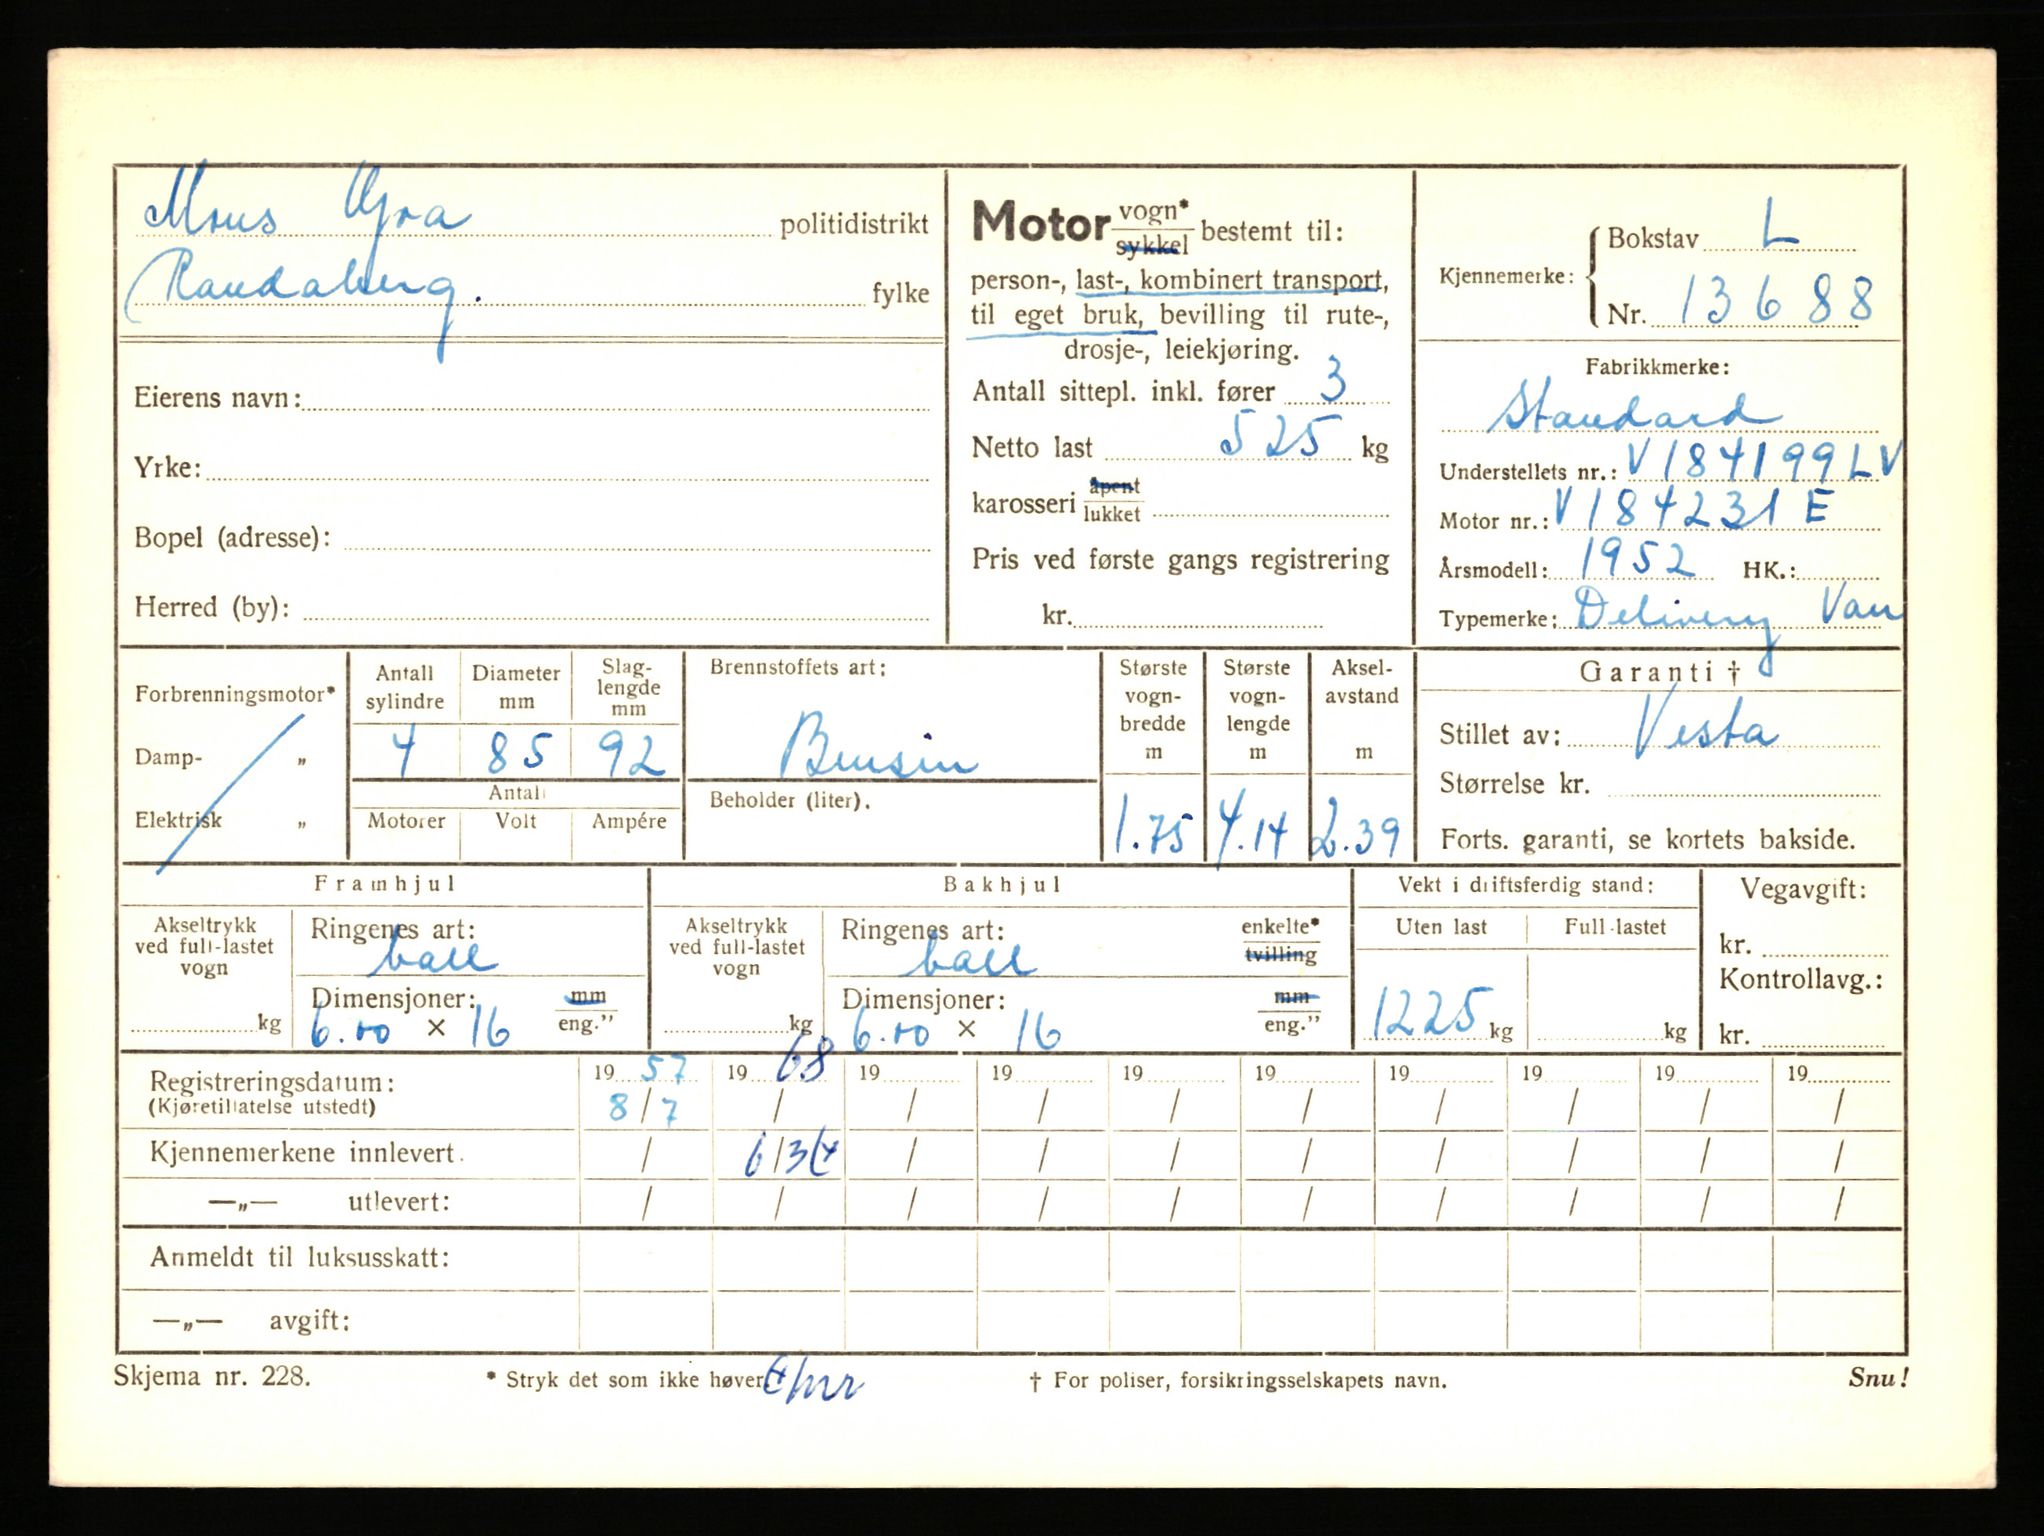 Mons Gjra politidistrikt
Randaberg. fylke
Eierens navn:
Yrke:
Bopel (adresse):
Herred (by):
Motor vogn* sykkel bestemt til:
person-, last-, kombinert transport,
til eget bruk, bevilling til rute-,
drosje-, leiekjøring.
Antall sittepl. inkl. fører 3
Netto last 525 kg
karosseri åpent lukket
Pris ved første gangs registrering
kr.
Kjennemerke: Bokstav L
Nr. 13688
Fabrikkmerke:
Standard
Understellets nr.: V184199LV
Motor nr.: V184231E
Årsmodell: 1952 HK.:
Typemerke: Delivery Van
Forbrenningsmotor*
Damp- „
Elektrisk „
Antall sylindre 4
Diameter mm 85
Slag-
lengde
mm 92
Antall
Motorer Volt Ampére
Brennstoffets art:
Bensin
Beholder (liter).
Største
vogn-
bredde
m
1.75
Største
vogn-
lengde
m
4.14
Aksel-
avstand
m
2.39
Garanti †
Stillet av: Vesta
Størrelse kr.
Forts. garanti, se kortets bakside.
Framhjul
Akseltrykk
ved full-lastet
vogn
kg
Ringenes art:
ball
Dimensjoner: mm
6.00 × 16 eng.”
Bakhjul
Akseltrykk
ved full-lastet
vogn
kg
Ringenes art: enkelte*
ball tvilling
Dimensjoner: mm
6.00 × 16 eng.”
Vekt i driftsferdig stand:
Uten last Full-lastet
1225 kg kg
Vegavgift:
kr.
Kontrollavg.:
kr.
Registreringsdatum: 19 57 19 68 19 19 19 19 19 19 19 19
(Kjøretillatelse utstedt) 8/7 / / / / / / / / /
Kjennemerkene innlevert. / 6/3 / / / / / / / /
—„— utlevert: / / / / / / / / / /
Anmeldt til luksusskatt:
—„— avgift:
Skjema nr. 228. * Stryk det som ikke høver. † For poliser, forsikringsselskapets navn. Snu!